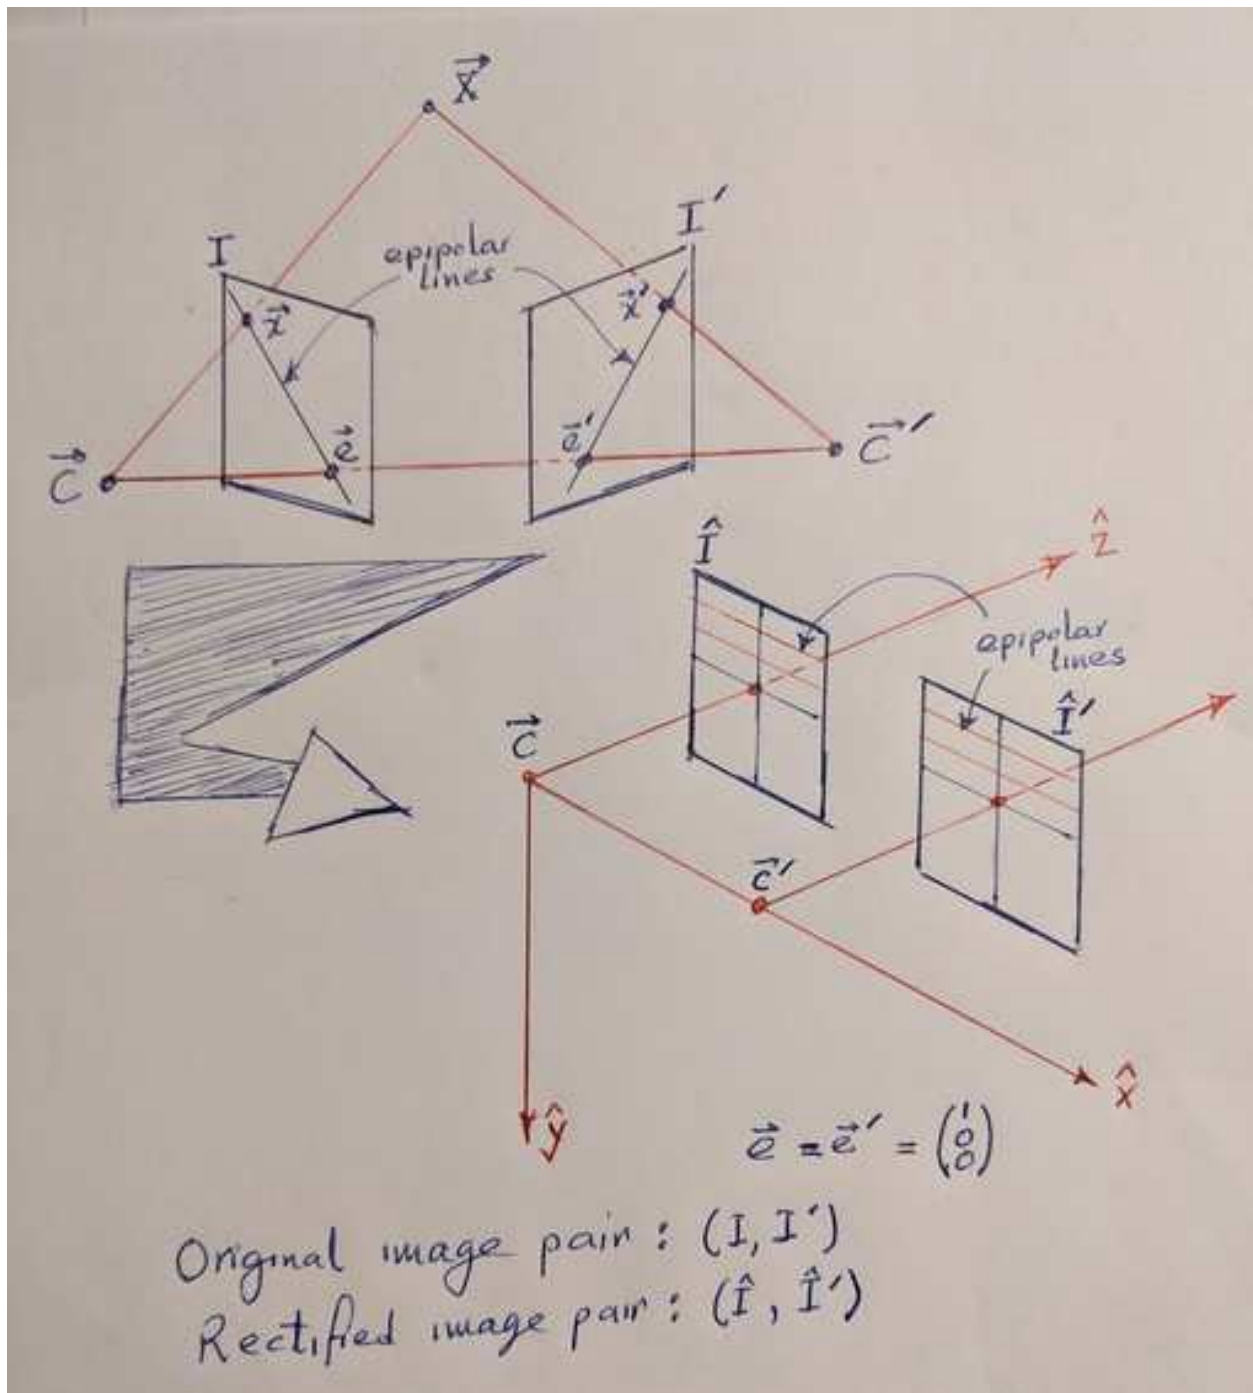 X⃗
I'
I
epipolar
lines
x⃗
x⃗'
e⃗
e⃗'
C⃗
C⃗'
Î
ẑ
epipolar
lines
Î'
C⃗
c⃗'
x̂
ŷ
e⃗ = e⃗' = (1 0 0)
Original image pair : (I, I')
Rectified image pair : (Î, Î')